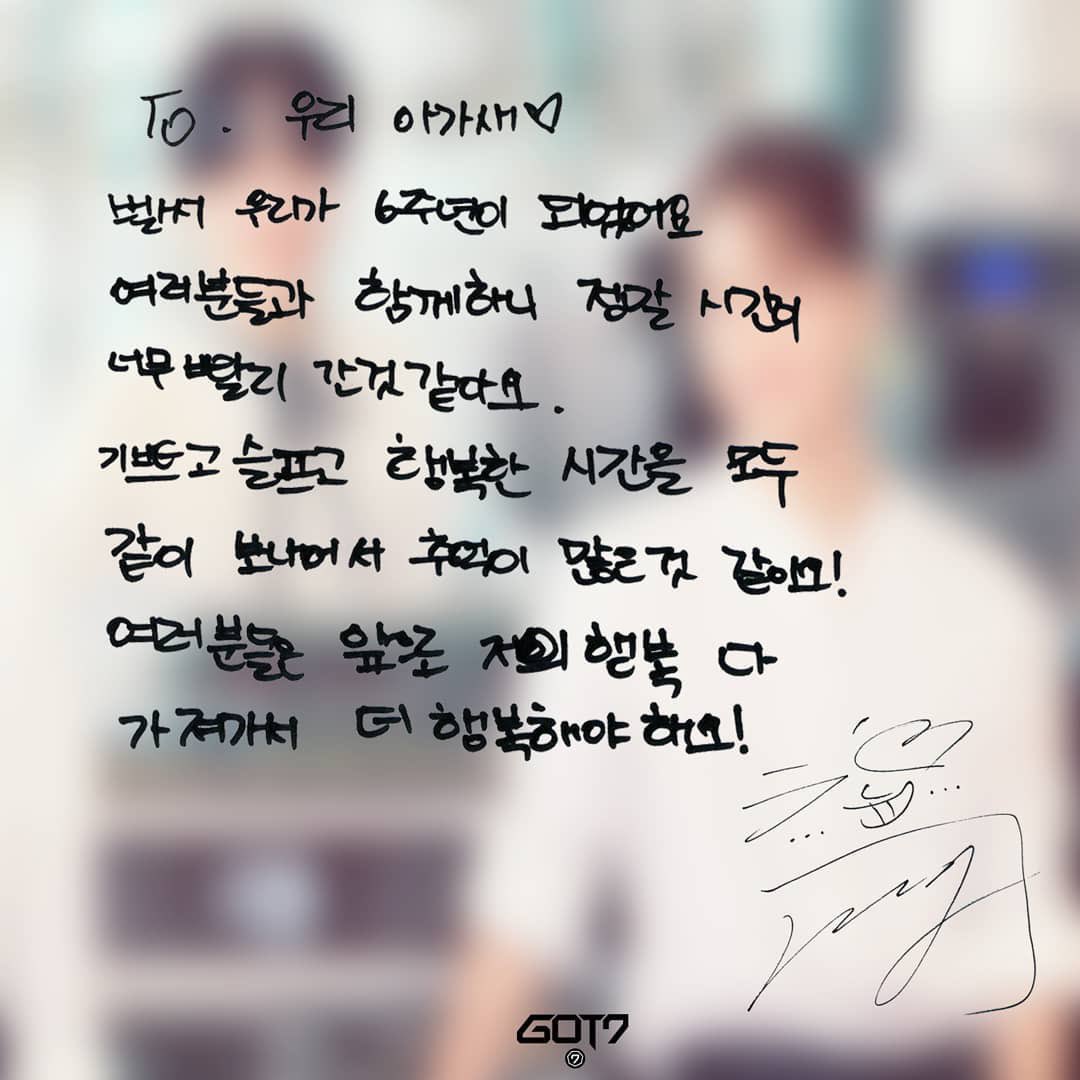 To. 우리 아가새♡
벌써 우리가 6주년이 되었어요
여러분들과 함께하니 정말 시간이
너무 빨리 간것 같아요.
기쁘고 슬프고 행복한 시간을 모두
같이 보내어서 추억이 많은것 같아요!
여러분들은 앞으로 저의 행복 다
가져가서 더 행복해야 해요!
GOT7
7